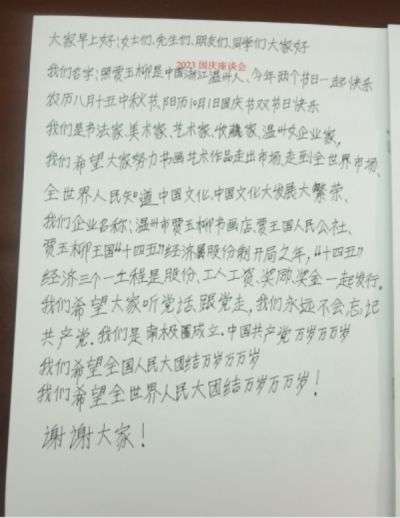 大家早上好!女士们、先生们、朋友们、同学们大家好
2023 国庆座谈会
我们名字:熙贾玉柳是中国浙江温州人、今年两个节日一起快乐
农历八月十五中秋节、阳历10月1日国庆节双节日快乐
我们是书法家、美术家、艺术家、收藏家、温州企业家,
我们希望大家努力书画艺术作品走出市场、走到全世界市场、
全世界人民知道中国文化、中国文化大发展大繁荣、
我们企业名称:温州市贾玉柳书画店、贾王国人民公社、
贾玉柳王国“十四五”经济属股份制开局之年,“十四五”
经济三个一工程是股份、工人工资、奖励、奖金一起发行。
我们希望大家听党话、跟党走,我们永远不会忘记
共产党。我们是南极国成立、中国共产党万岁万万岁
我们希望全国人民大团结万岁万万岁
我们希望全世界人民大团结万岁万万岁!
谢谢大家!